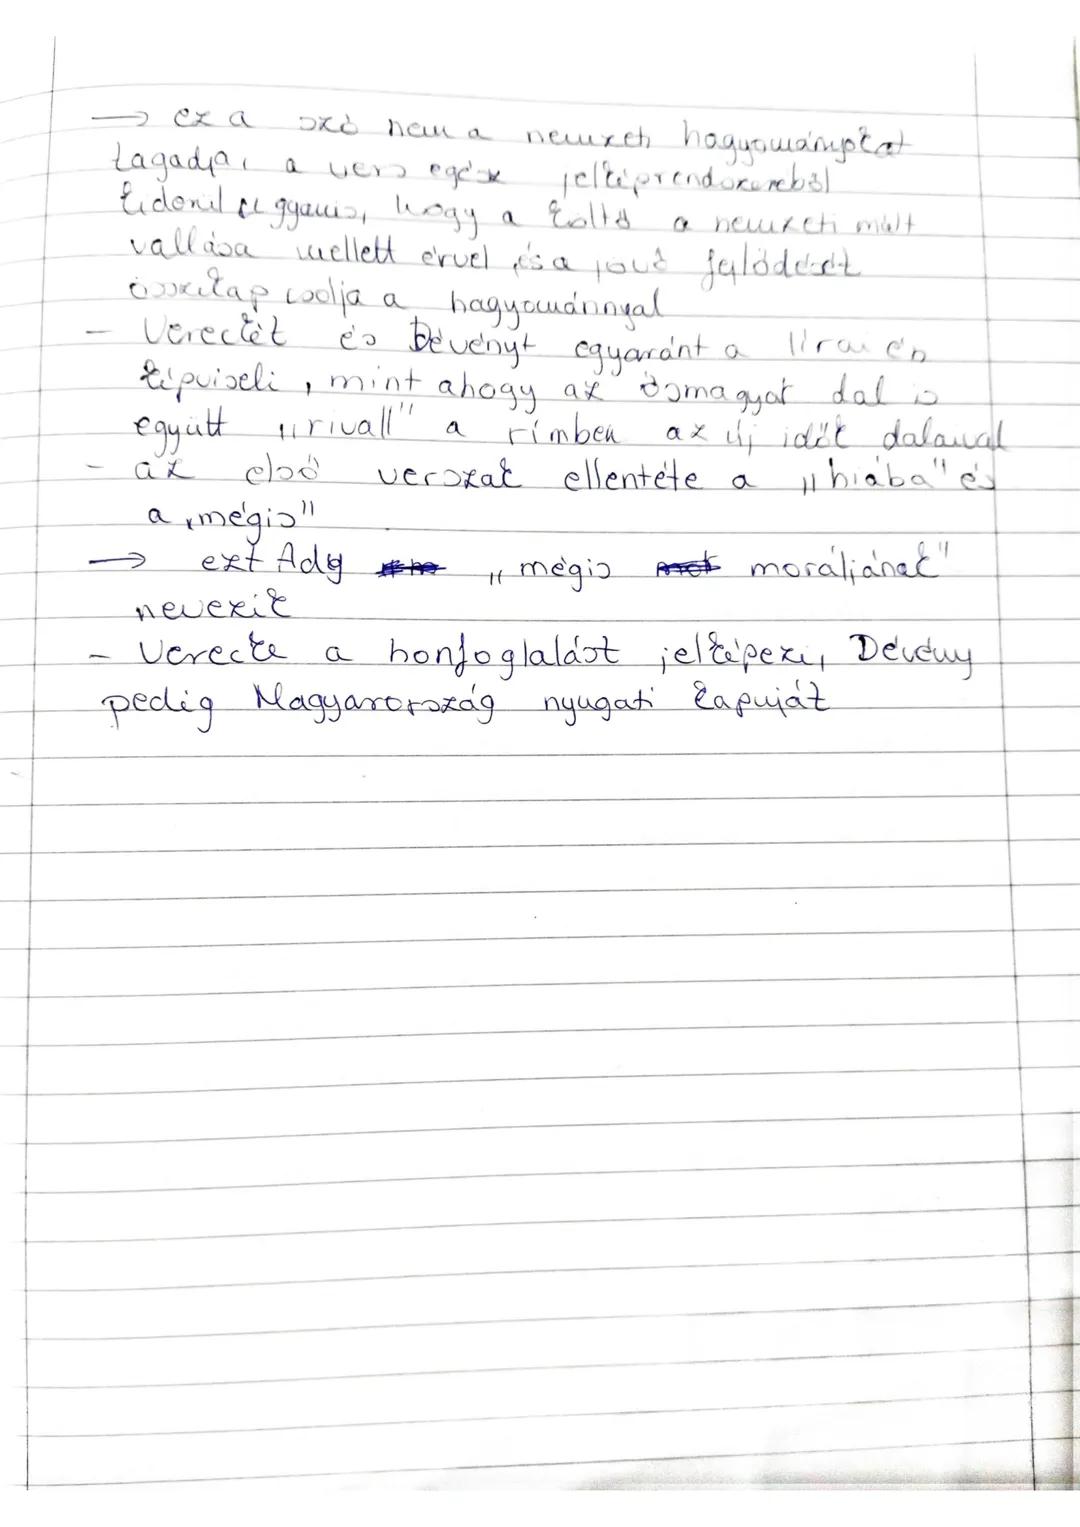 → ez a szó nem a nemzeti hagyományokat
tagadja, a vers egész jelképrendszeréből
kiderül ugyanis, hogy a költő a nemzeti múlt
vallása mellett érvel és a jövő fejlődését
összekapcsolja a hagyománnyal
- Vereckét és Dévényt egyaránt a lírai én
képviseli, mint ahogy az ősmagyar dal is
együtt „rivall" a rímben az új idők dalaival
- az első verszak ellentéte a „hiába" és
a „mégis"
→ ezt Ady „mégis moráljának"
nevezik
- Verecke a honfoglalást jelképezi, Dévény
pedig Magyarország nyugati kapuját